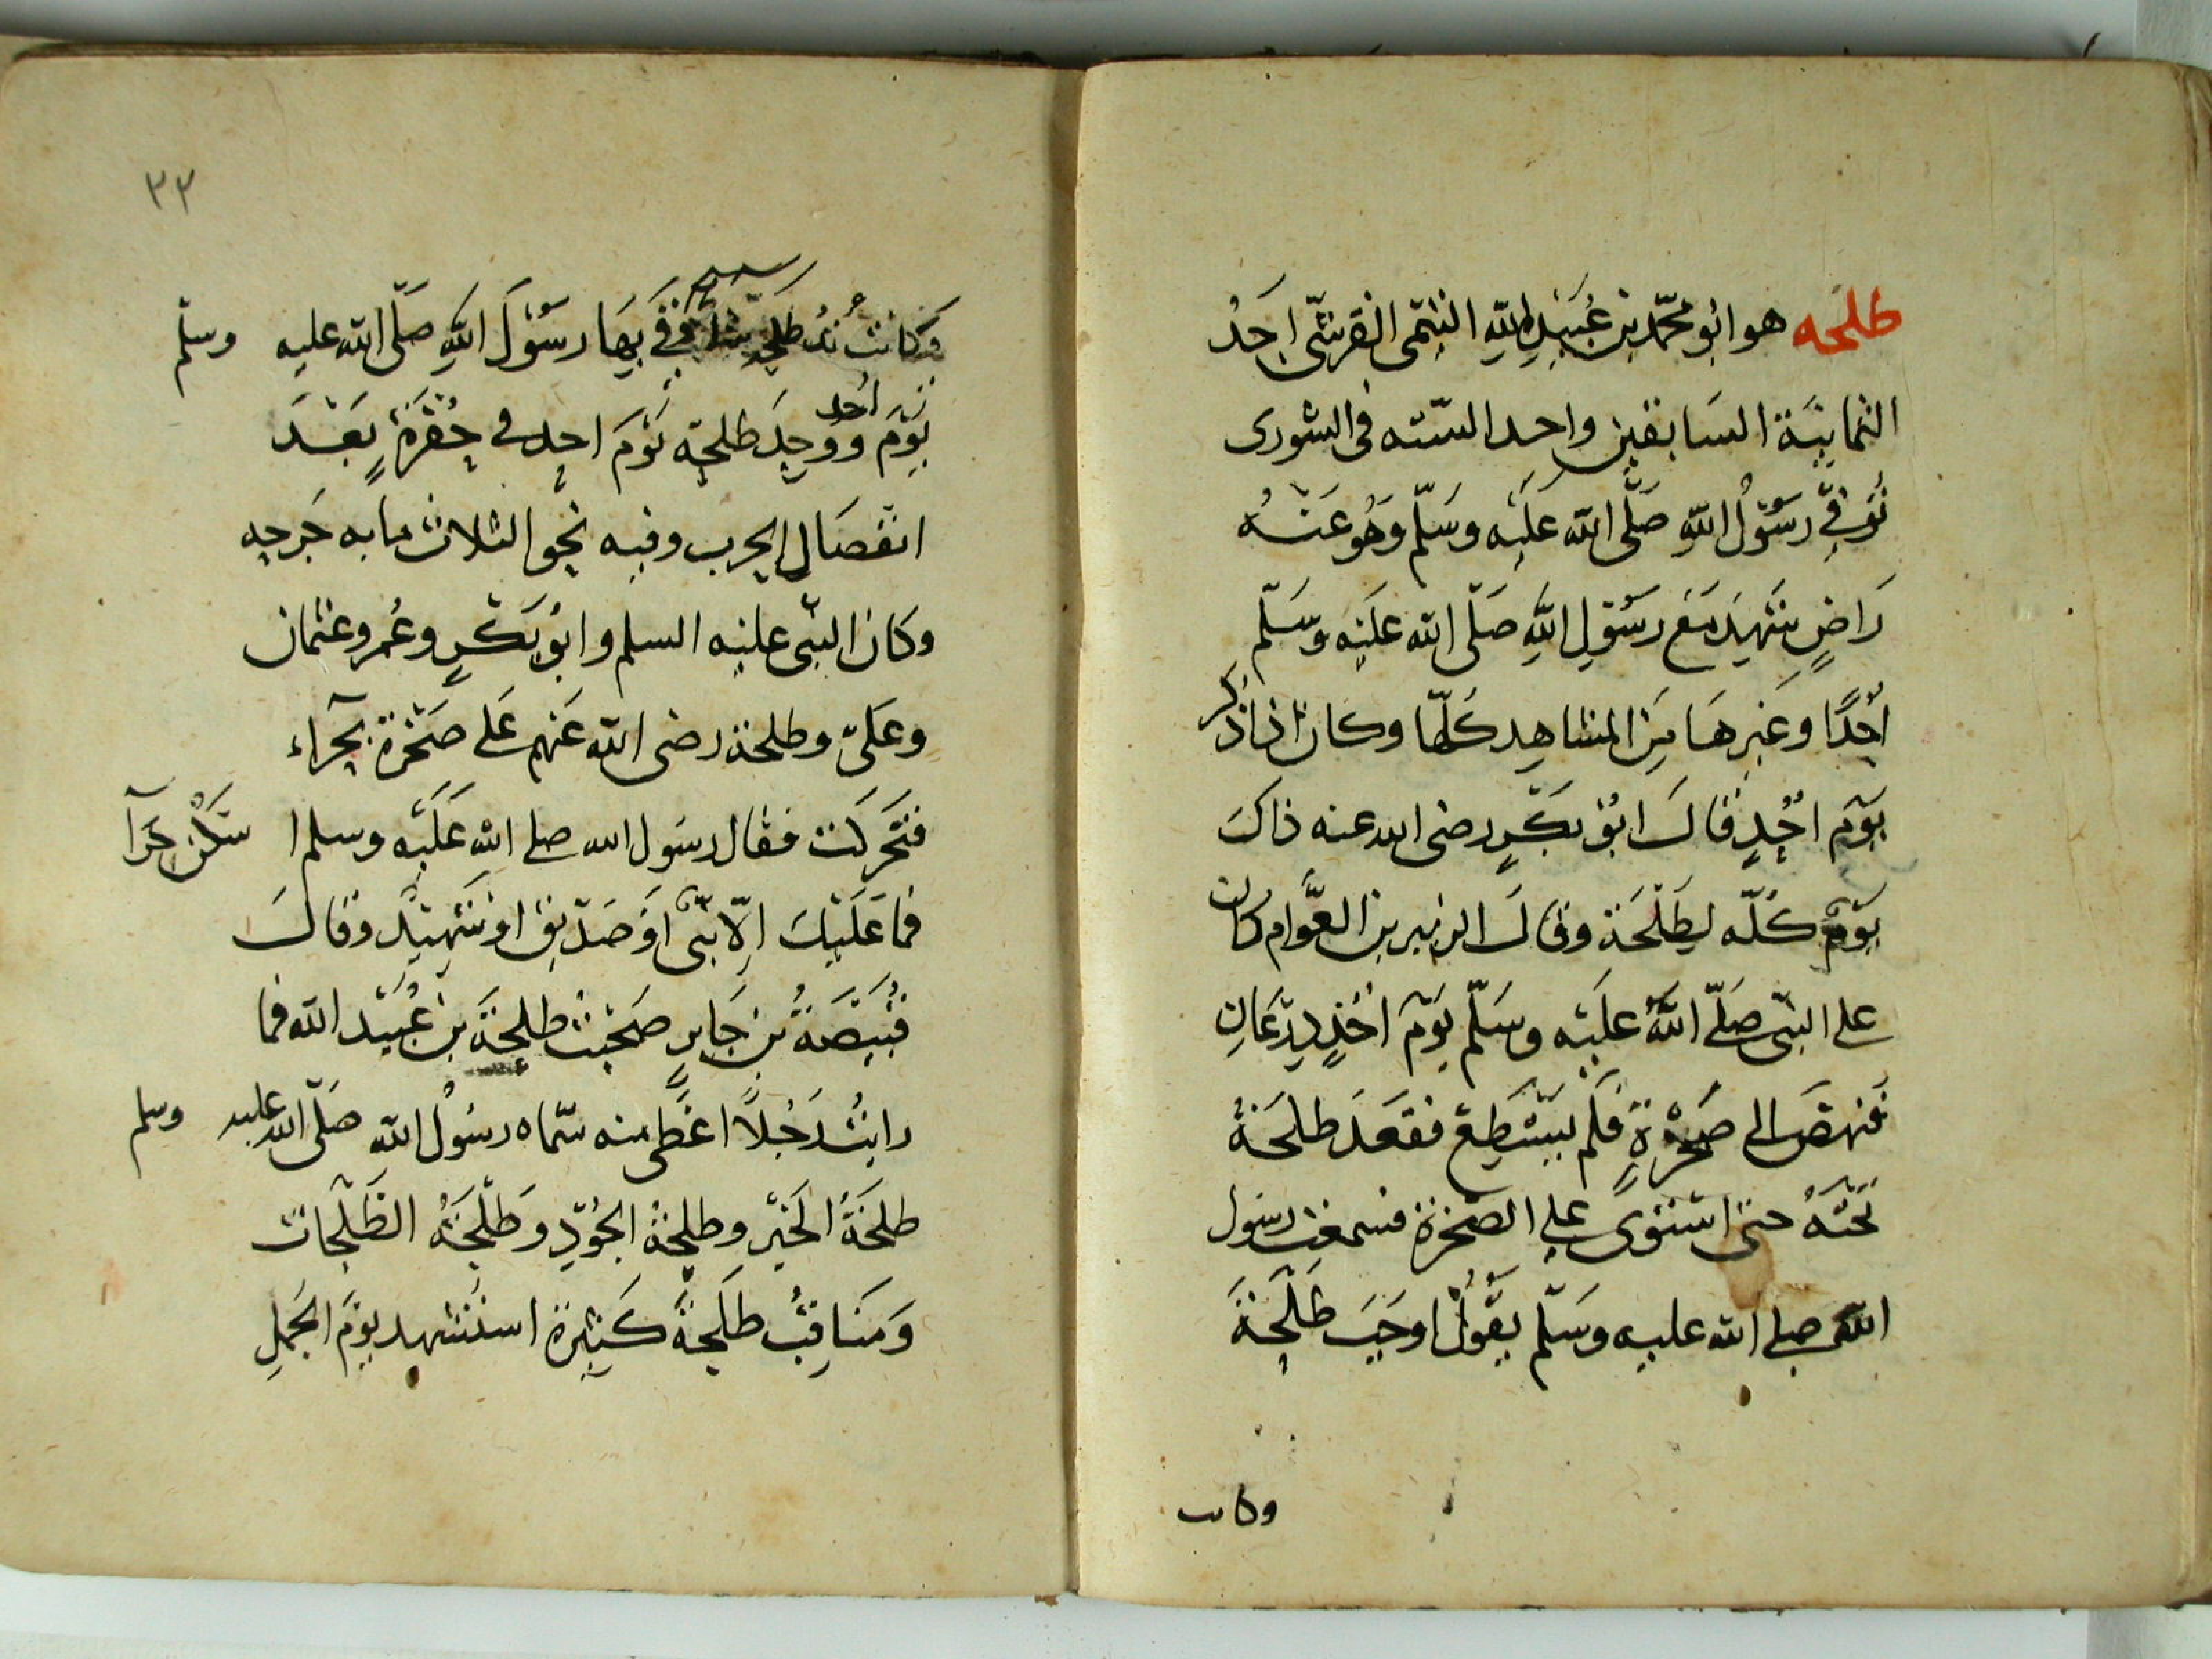 طلحه هو ابو محمّد بن عُبَيْدِ اللهِ التيمى القرشىّ احَدُ
الثمانيَة السَابقين واحد السّته فى الشورى
تُوفِّىَ رسُوْلُ اللهِ صَلَّى الله عَليْه وسَلّم وَهُو عَنْهُ
رَاضٍ شهِدَ مَعَ رسُوْلِ اللهِ صَلّى الله عَلَيْه وسَلّم
اُحُدًا وغَيرهَا مِنَ المشاهِدِ كُلّها وكان اذا ذكر
يَوْم اُحُدٍ قالَ ابُو بَكْرٍ رضى الله عنه ذاكَ
يَوْمٌ كُلّه لِطَلْحَة وقالَ الزبير بن العَوَّام كان
على النبّى صَلّى اللهُ عليْه وسَلّم يَوْمَ اُحُدٍ دِرْعَانِ
فنهضَ الى صَخْرةٍ فَلَم يَسْتَطِع فقعَدَ طلحَةُ
تَحْتَهُ حتى اسْتَوىَ على الصّخرة فسمعْت رسُول
اللهِ صلى الله عليه وسَلّم يقُوْلُ اوجَبَ طَلْحَةُ
وكانت
٣٣
وَكانت يَدُ طلحة شلّا وَقَى بِهَا رسُوْلَ اللهِ صَلّى الله عليه وسلّم
يَوْمَ احُد ووُجِدَ طلحة يَوْمَ احدٍ فى حُفْرَةٍ بَعْدَ
انفصَالِ الحرب وفيه نحو الثلاث مايه جَرحه
وكان النبّى عليْه السلم وابُو بَكْرٍ وعُمر وعثمان
وعَلىّ وطلحة رضى الله عَنهم عَلى صَخْرة بحِراء
فَتَحَركَت فقال رسَول الله صلى الله عَليْه وسلم اسْكُنْ حِرآ
فمَا عَلَيْكَ اِلّا نبّى اَوْ صدّيق اوْ شَهِيْدٌ وقالَ
قُبَيْصَةُ بن جَابرٍ صَحبْتُ طلحَةَ بن عُبَيْد الله فما
رايتُ رَجُلاً اعْطى منه سّماه رسُولُ الله صَلّى الله عليه وسلم
طلحَةُ الخَيْر وطلحةُ الجُوْدِ وطَلْحَةُ الطَلْحَات
وَمَنَاقِبُ طلحَةَ كَثيرة استشهد يوْمَ الجَملِ